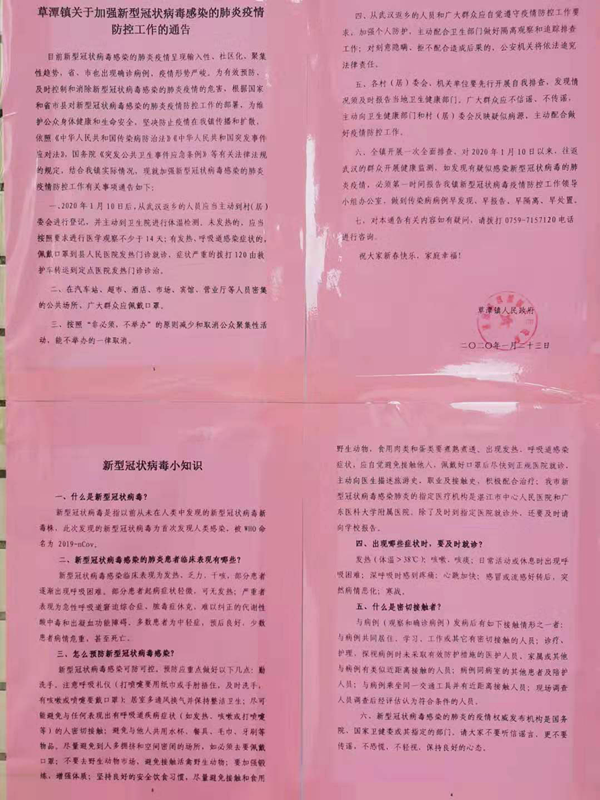 草潭镇关于加强新型冠状病毒感染的肺炎疫情
防控工作的通告
目前新型冠状病毒感染的肺炎疫情呈现输入性、社区化、聚集
性趋势，省、市也出现确诊病例，疫情形势严峻。为有效预防、
及时控制和消除新型冠状病毒感染的肺炎疫情的危害，根据国家
和省市县对新型冠状病毒感染的肺炎疫情防控工作的部署，为维
护公众身体健康和生命安全，坚决防止疫情在我镇传播和扩散，
依照《中华人民共和国传染病防治法》《中华人民共和国突发事件
应对法》、国务院《突发公共卫生事件应急条例》等有关法律法规
的规定，结合我镇实际情况，现就加强新型冠状病毒感染的肺炎
疫情防控工作有关事项通告如下：
一、2020年1月10日后，从武汉返乡的人员应当主动到村(居)
委会进行登记，并主动到卫生院进行体温检测。未发热的，应当
按照要求进行医学观察不少于14天；有发热、呼吸道症状的，
佩戴口罩到县人民医院发热门诊就诊，症状严重的拨打120由救
护车转运到定点医院发热门诊诊治。
二、在汽车站、超市、酒店、市场、宾馆、营业厅等人员密集
的公共场所，广大群众应佩戴口罩。
三、按照“非必须，不举办”的原则减少和取消公众聚集性活
动，能不举办的一律取消。
四、从武汉返乡的人员和广大群众应自觉遵守疫情防控工作要
求，加强个人防护，主动配合卫生部门做好隔离观察和追踪排查
工作；对刻意隐瞒、拒不配合造成后果的，公安机关将依法追究
法律责任。
五、各村（居）委会、机关单位要先行开展自我排查，发现情
况须及时报告当地卫生健康部门，广大群众应不信谣、不传谣，
主动向卫生健康部门和村（居）委会反映疑似病源，主动配合做
好疫情防控工作。
六、全镇开展一次全面排查，对2020年1月10日以来，往返
武汉的群众开展健康监测，如发现有疑似感染新型冠状病毒的肺
炎疫情，必须第一时间报告我镇新型冠状病毒疫情防控工作领导
小组办公室，做到传染病病例早发现、早报告、早隔离、早处置。
七、对本通告有关内容如有疑问，请拨打0759-7157120电话
进行咨询。
祝大家新春快乐、家庭幸福！
草潭镇人民政府
二〇二〇年一月二十三日
新型冠状病毒小知识
一、什么是新型冠状病毒?
新型冠状病毒是指以前从未在人类中发现的新型冠状病毒新
毒株，此次发现的新型冠状病毒为首次发现人类感染，被WHO命
名为2019-nCov。
二、新型冠状病毒感染的肺炎患者临床表现有哪些?
新型冠状病毒感染临床表现为发热、乏力、干咳，部分患者
逐渐出现呼吸困难。部分患者起病症状轻微，可无发热；严重者
表现为急性呼吸窘迫综合症、脓毒症休克、难以纠正的代谢性
酸中毒和出凝血功能障碍。多数患者为中轻症，预后良好，少数
患者病情危重，甚至死亡。
三、怎么预防新型冠状病毒感染?
新型冠状病毒感染可防可控，预防应重点做好以下几点：勤
洗手，注意呼吸礼仪（打喷嚏要用纸巾或手肘捂住，及时洗手，
有咳嗽或喷嚏要戴口罩）；居室多通风换气并保持整洁卫生；尽可
能避免与任何表现出有呼吸道疾病症状（如发热、咳嗽或打喷嚏
等）的人密切接触；避免与他人共用水杯、餐具、毛巾、牙刷等
物品，尽量避免到人多拥挤和空间密闭的场所，如必须去要佩戴
口罩；不要去野生动物市场，避免接触活禽野生动物；要加强锻
炼，增强体质；坚持良好的安全饮食习惯，尽量避免接触和食用
野生动物，食用肉类和蛋类要煮熟煮透。出现发热、呼吸道感染
症状，应自觉避免接触他人，佩戴好口罩后尽快到正规医院就诊，
主动向医生描述旅游史、职业及接触史，积极配合治疗；我市新
型冠状病毒感染肺炎的指定医疗机构是湛江市中心人民医院和广
东医科大学附属医院。除了及时到指定医院就诊外，还要及时请
向学校报告。
四、出现哪些症状时，要及时就诊?
发热（体温>38℃）；咳嗽、咳痰；日常活动或休息时出现呼
吸困难；深呼吸时感到疼痛；心跳加快；感冒或流感好转后，突
然病情恶化；寒战。
五、什么是密切接触者?
与病例（观察和确诊病例）发病后有如下接触情形之一者：
与病例共同居住、学习、工作或其它有密切接触的人员；诊疗、
护理、探视病例时未采取有效防护措施的医护人员、家属或其他
与病例有类似近距离接触的人员；病例同病室的其他患者及陪护
人员；与病例乘坐同一交通工具并有近距离接触人员；现场调查
人员调查后经评估认为符合条件的人员。
六、新型冠状病毒感染的肺炎的疫情权威发布机构是国务
院、国家卫健委或其指定的部门，请大家不要听信谣言，更不要
传谣，不恐慌，不轻视，保持良好的心态。